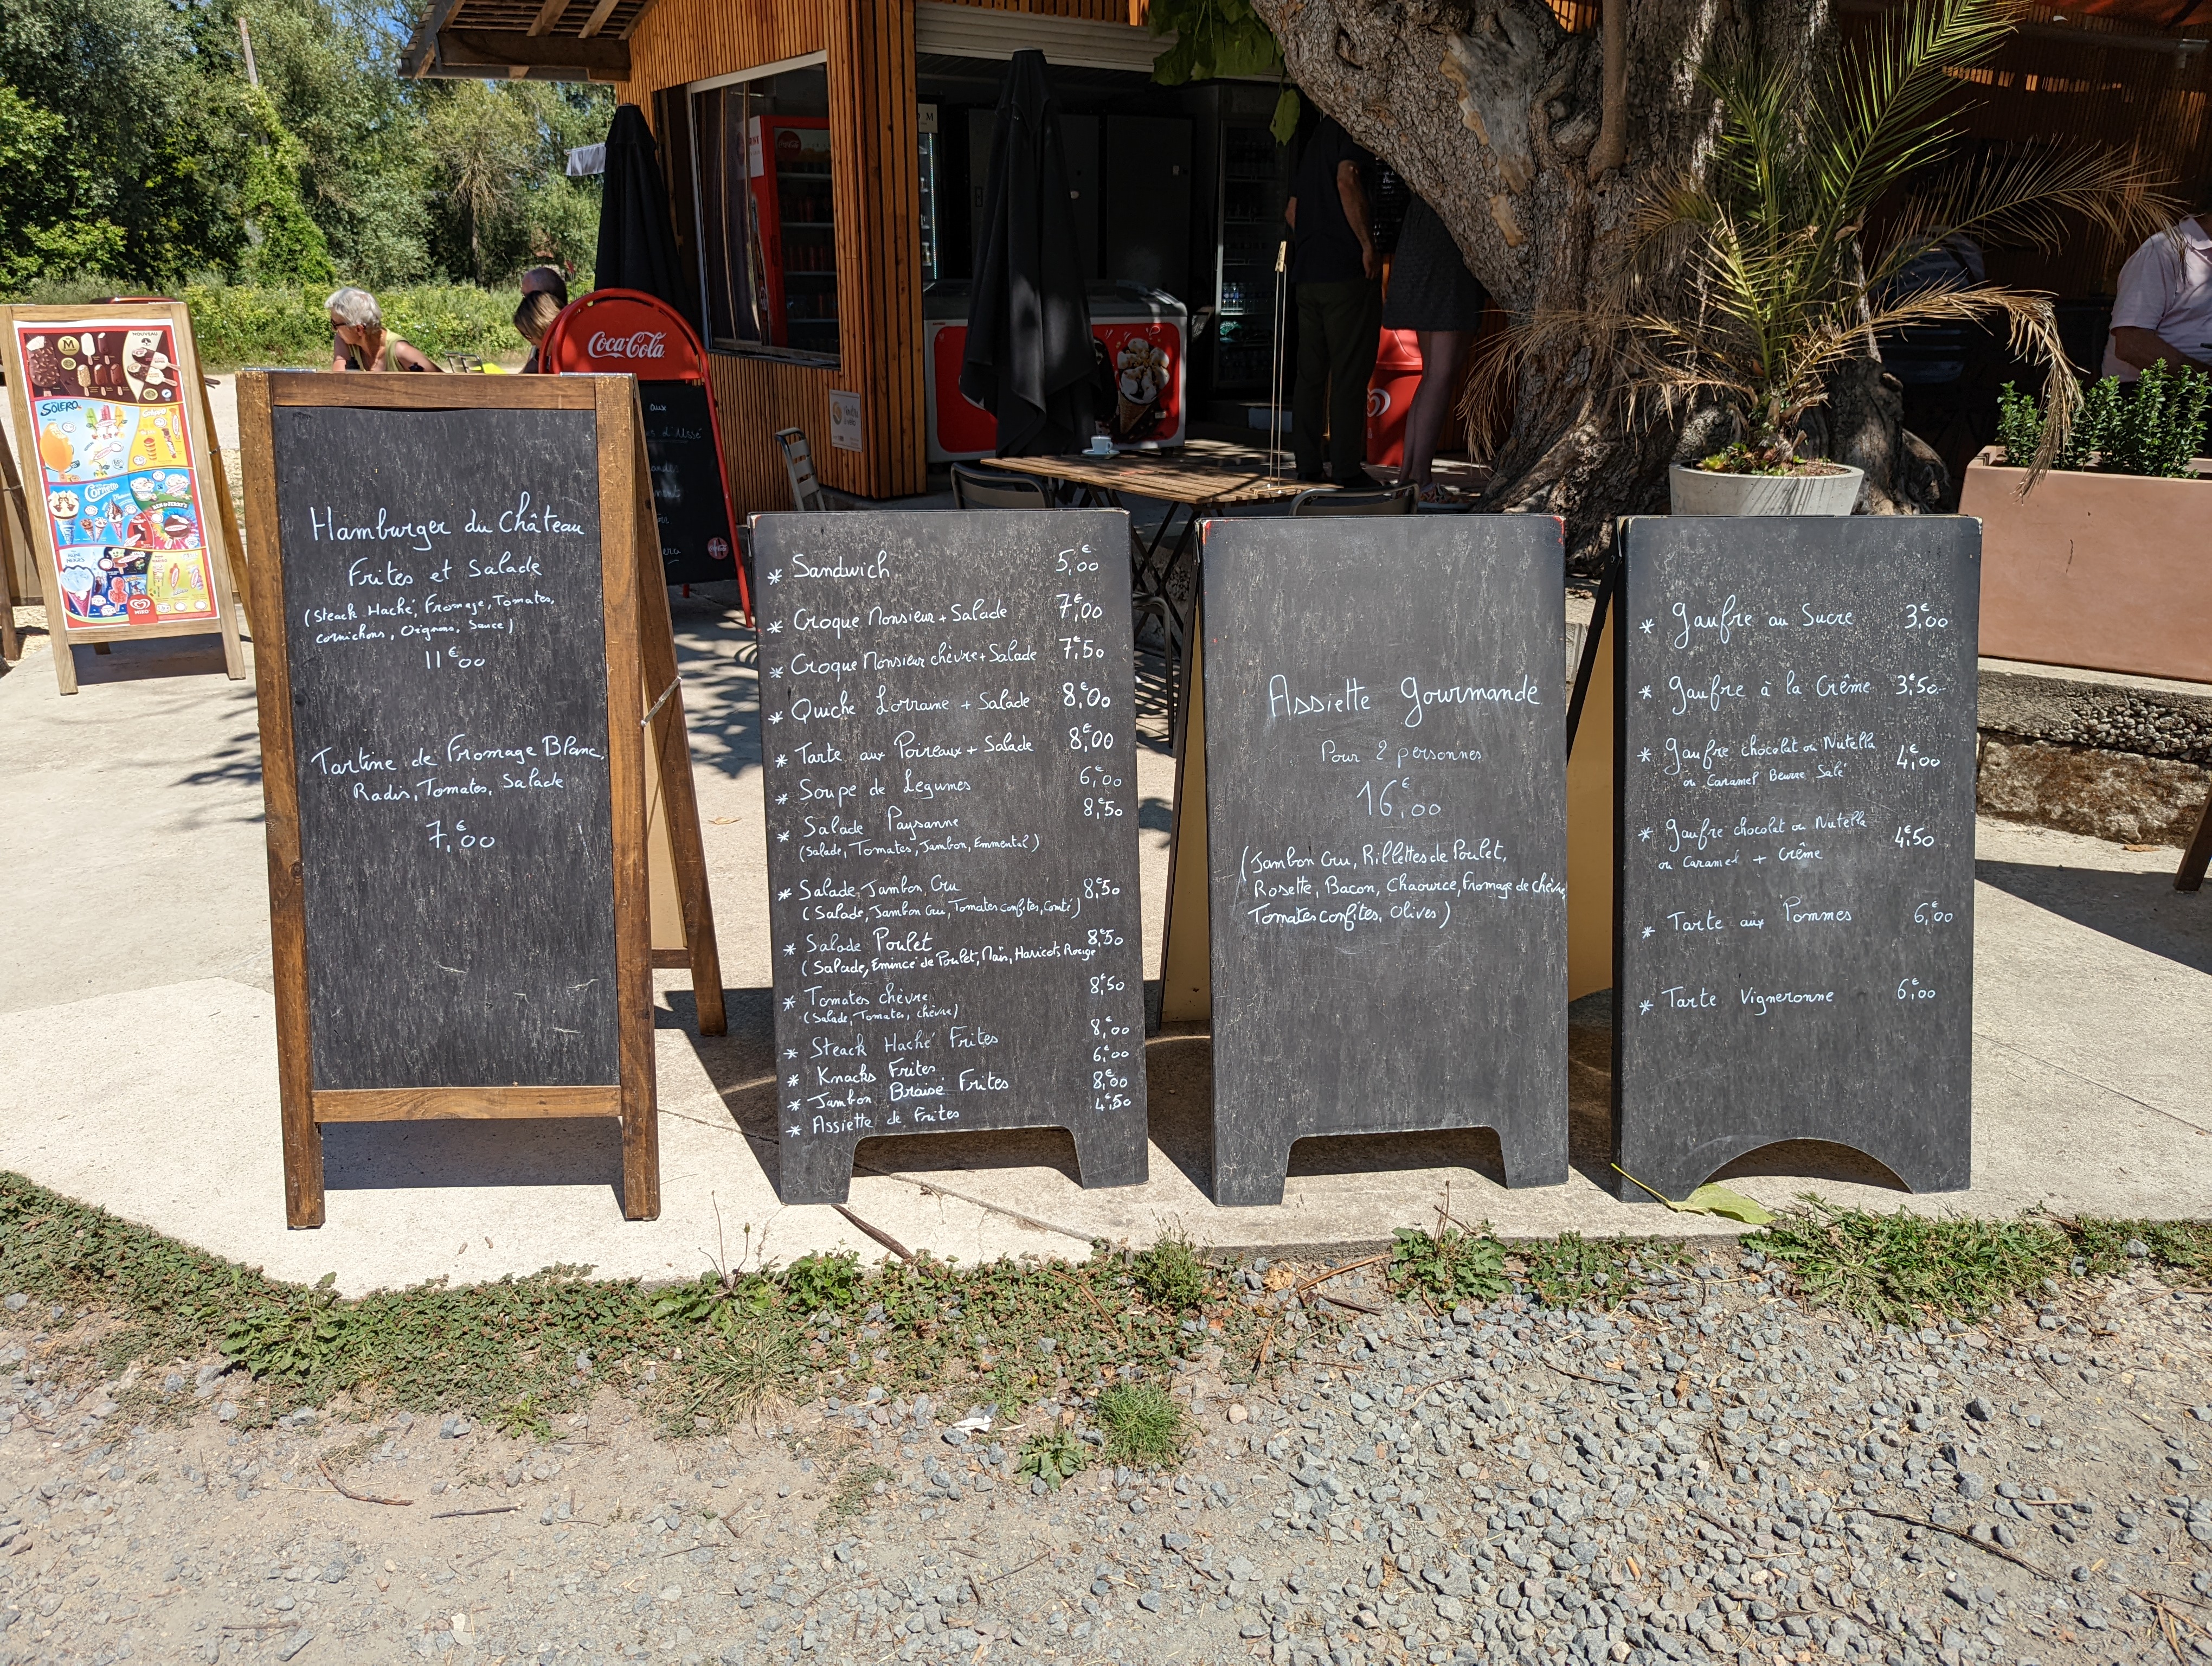 NOUVEAU
M
SOLERO
Calippo
Cornetto
BEN & JERRY'S
MIKO
Coca-Cola
aux
Hamburger du Château
Frites et Salade
(Steack Haché, Fromage, Tomates,
cornichons, Oignons, Sauce)
11€00
Tartine de Fromage Blanc,
Radis, Tomates, Salade
7,€00
* Sandwich 5,€00
* Croque Monsieur + Salade 7,€00
* Croque Monsieur chèvre + Salade 7,€50
* Quiche Lorraine + Salade 8,€00
* Tarte aux Poireaux + Salade 8,€00
* Soupe de Légumes 6,€00
* Salade Paysanne 8,€50
(Salade, Tomates, Jambon, Emmental)
* Salade Jambon Cru 8,€50
(Salade, Jambon Cru, Tomates confites, Comté)
* Salade Poulet 8,€50
(Salade, Emincé de Poulet, Maïs, Haricots Rouge
* Tomates chèvre 8,€50
(Salade, Tomates, chèvre)
* Steack Haché Frites 8,€00
* Knacks Frites 6,€00
* Jambon Braisé Frites 8,€00
* Assiette de Frites 4,€50
Assiette Gourmande
Pour 2 personnes
16,€00
(Jambon Cru, Rillettes de Poulet,
Rosette, Bacon, Chaource, Fromage de chèvre,
Tomates confites, Olives)
* Gaufre au Sucre 3,€00
* Gaufre à la Crème 3,€50
* Gaufre chocolat ou Nutella 4,€00
ou Caramel Beurre Salé
* Gaufre chocolat ou Nutella 4,€50
ou Caramel + Crème
* Tarte aux Pommes 6,€00
* Tarte Vigneronne 6,€00